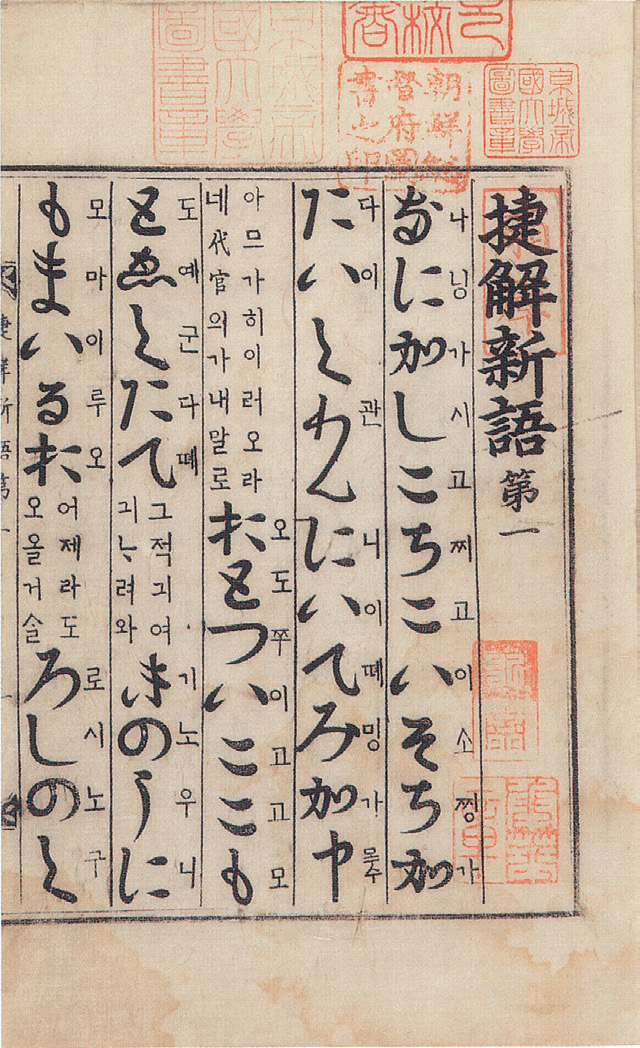 京城帝國大學圖書章
朝鮮總督府圖書之印
京城帝國大學圖書章
捷解新語 第一
なに加しこちこいそち加
나닝가시고찌고이소찡가
たいくわんにいてみ加中
다이관니이뗴밍가
아므가히이러오라
네代官의가내말로
おとついここも
오도쭈이고고모
とゑくたて
도예군다뗴
그적긔여
긔ᄂᆞ려와
きのうに
기노우니
もまいるお
모마이루오
어제라도
오올거슬
ろしのく
로시노구
捷解新語第一